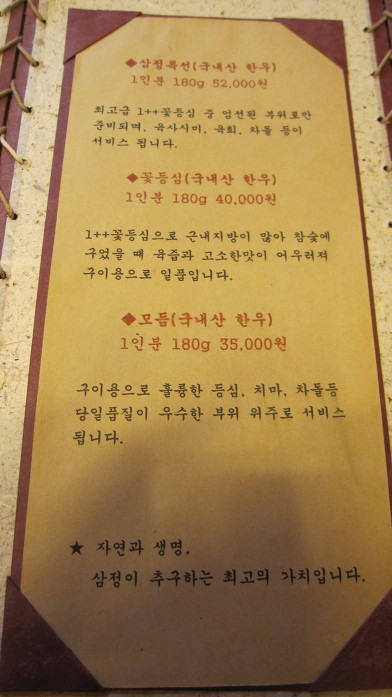 ◆삼정특선(국내산 한우)
1인분 180g 52,000원
최고급 1++꽃등심 중 엄선된 부위로만
준비되며, 육사시미, 육회, 차돌 등이
서비스 됩니다.
◆꽃등심(국내산 한우)
1인분 180g 40,000원
1++꽃등심으로 근내지방이 많아 참숯에
구었을 때 육즙과 고소한맛이 어우러져
구이용으로 일품입니다.
◆모듬(국내산 한우)
1인분 180g 35,000원
구이용으로 훌륭한 등심, 치마, 차돌등
당일품질이 우수한 부위 위주로 서비스
됩니다.
★ 자연과 생명,
삼정이 추구하는 최고의 가치입니다.